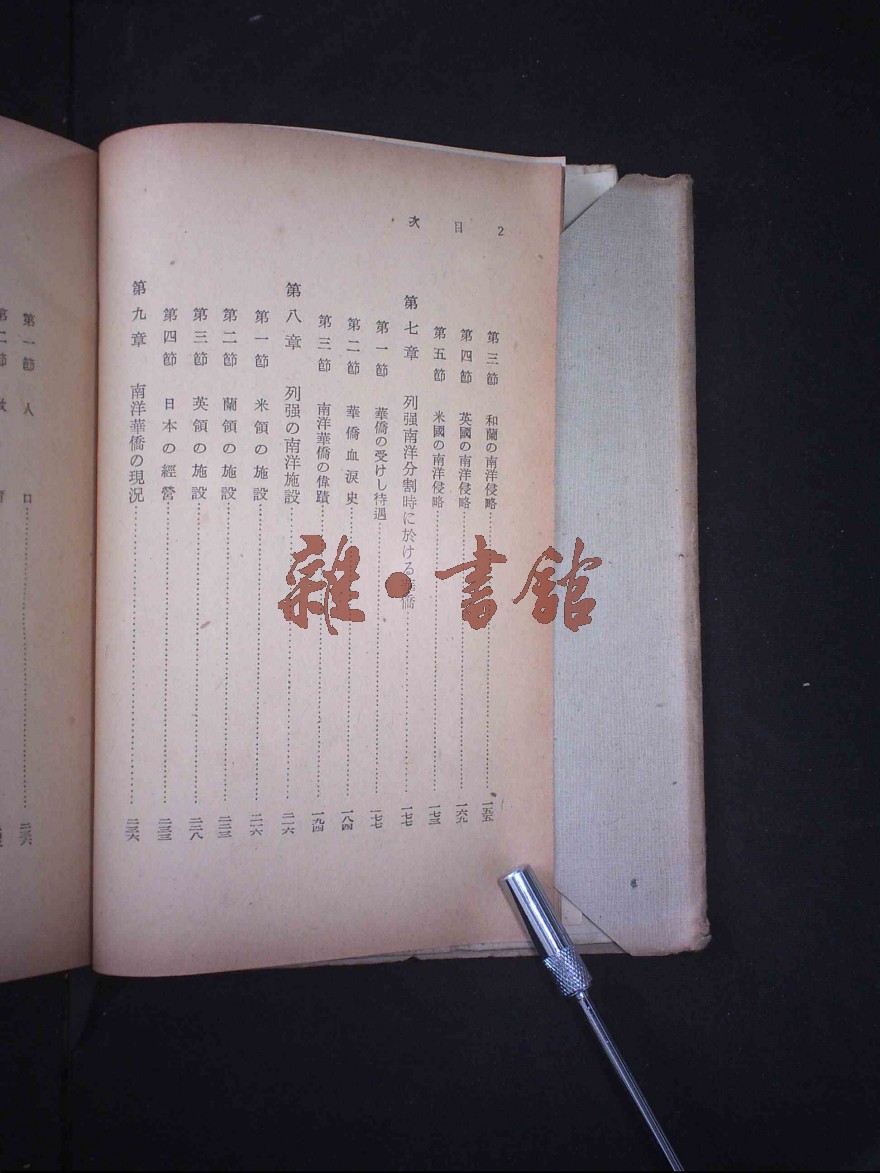 目次 2
第三節 和蘭の南洋侵略 一五五
第四節 英國の南洋侵略 一六九
第五節 米國の南洋侵略 一七三
第七章 列强南洋分割時に於ける華僑 一七七
第一節 華僑の受けし待遇 一七七
第二節 華僑血淚史 一八四
第三節 南洋華僑の偉蹟 一九四
第八章 列强の南洋施設 二一六
第一節 米領の施設 二一六
第二節 蘭領の施設
第三節 英領の施設 二二八
第四節 日本の經營
第九章 南洋華僑の現況
第一節 人口
第二節
雜·書館